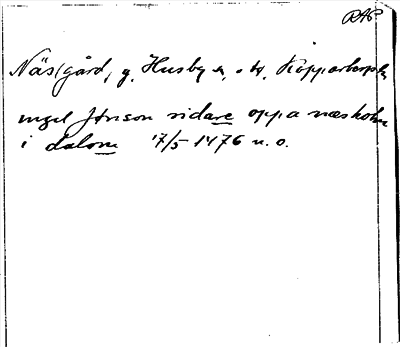 RAP
Näs(gård, g. Husby sn, o hd, Kopparbergs l.
ingel Jönson ridare oppa næsholm
i dalom 17/5 1476 u. o.